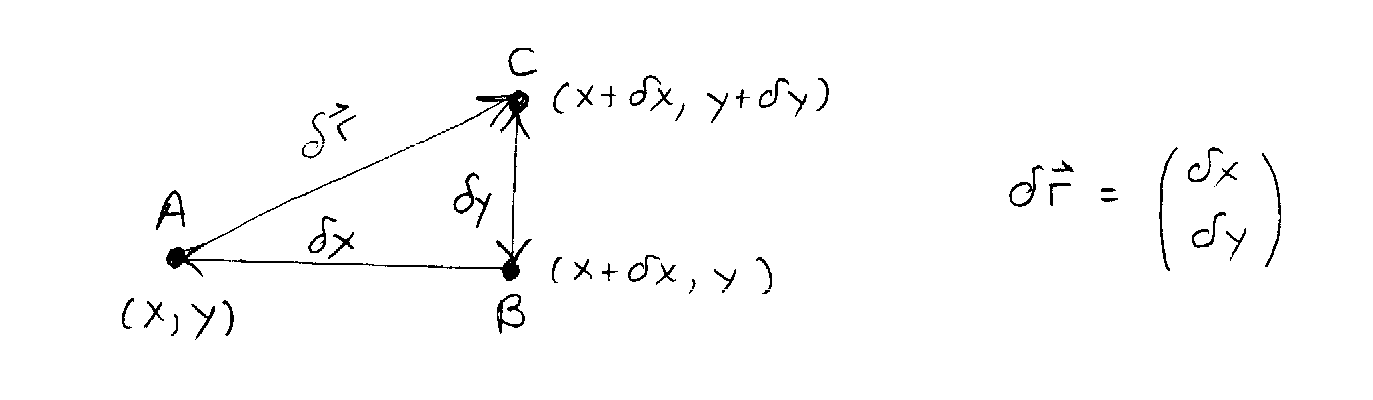 C
(x+δx, y+δy)
δr⃗
A
δy
δx
(x, y)
B
(x+δx, y)
δr⃗ = (δx
δy)